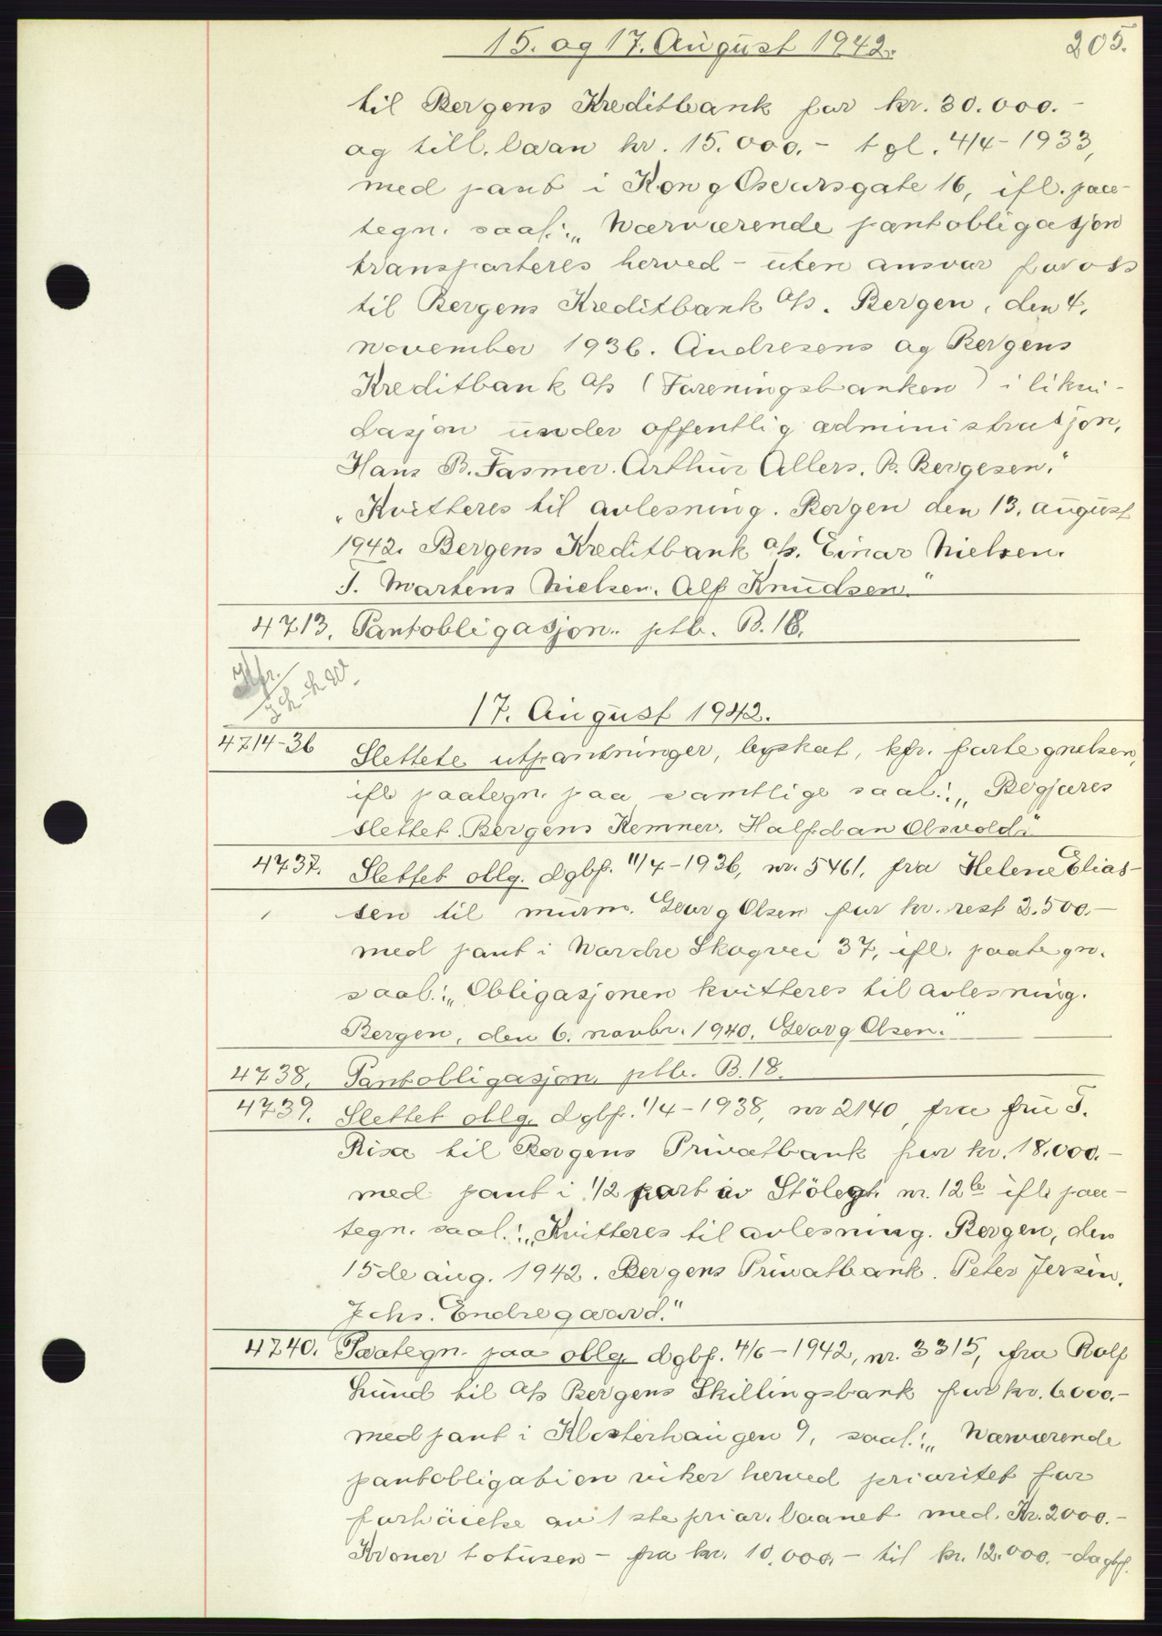 15. og 17. August 1942. 205.
til Bergens Kreditbank for kr. 30.000.-
og till. laan kr. 15.000.- tgl. 4/4-1933,
med pant i Kong Oscarsgate 16, ifl. paa-
tegn. saal.: „Nærværende pantobligasjon
transporteres herved - uten ansvar for oss
til Bergens Kreditbank A/s. Bergen, den 4.
november 1936. Andresens og Bergens
Kreditbank A/s (Foreningsbanken) i likvi-
dasjon under offentlig administrasjon,
Hans B. Fasmer. Arthur Allers. B. Bergesen."
„Kvitteres til avlesning. Bergen den 13. august
1942. Bergens Kreditbank A/s. Einar Nielsen.
T. Martens Nielsen. Alf Knudsen."
4713. Pantobligasjon. ptb. B.18.
Kfr.
17. August 1942.
4714-36 Slettete utpantninger, byskat, kfr. fortegnelsen,
ifl. paategn. paa samtlige saal.: „Begjæres
slettet. Bergens Kemner. Halfdan Olsvold."
4737. Slettet oblg. dgbf. 11/7-1936, nr. 5461, fra Helene Elias-
sen til murm. Georg Olsen for kr. rest 2.500.-
med pant i Nordre Skogvei 37, ifl. paategn.
saal.: „Obligasjonen kvitteres til avlesning.
Bergen, den 6. novbr. 1940. Georg Olsen."
4738. Pantobligasjon. ptb. B.18.
4739. Slettet oblg. dgbf. 1/4-1938, nr 2140, fra fru T.
Risa til Bergens Privatbank for kr. 18.000.-
med pant i 1/2 part av Stölegt. nr. 12b ifl. paa-
tegn. saal.: „Kvitteres til avlesning. Bergen, den
15de aug. 1942. Bergens Privatbank. Peter Jersin.
Johs. Endregaard."
4740. Paategn. paa oblg. dgbf. 4/6-1942, nr. 3315, fra Rolf
Lund til A/s Bergens Skillingsbank for kr. 6000.-
med pant i Klosterhaugen 9, saal.: „Nærværende
pantobligation viker herved prioritet for
forhöielse av 1ste prior. laanet med. Kr. 2000.-
Kroner totusen - fra kr. 10.000.- til kr. 12.000.- dagbf.